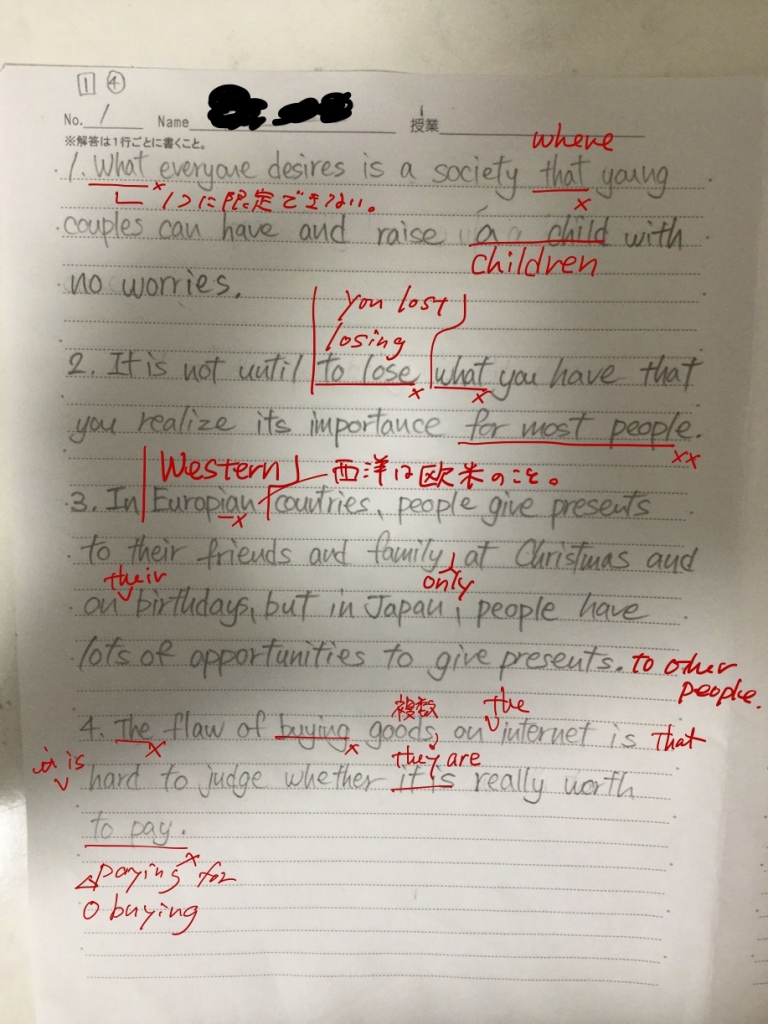 1 4
No. 1 Name 授業
※解答は1行ごとに書くこと。
where
1. What everyone desires is a society that young
× 1つに限定できない。 ×
couples can have and raise a child with
children
no worries.
you lost
losing
2. It is not until to lose what you have that
× ×
you realize its importance for most people.
××
Western 西洋は欧米のこと。
3. In Europian countries, people give presents
×
to their friends and family, at Christmas and
their only
on birthdays, but in Japan, people have
lots of opportunities to give presents. to other
people.
複数 the
4. The flaw of buying goods, on internet is that
× ×
it is they are
hard to judge whether it is really worth
to pay.
×
△paying for
○ buying